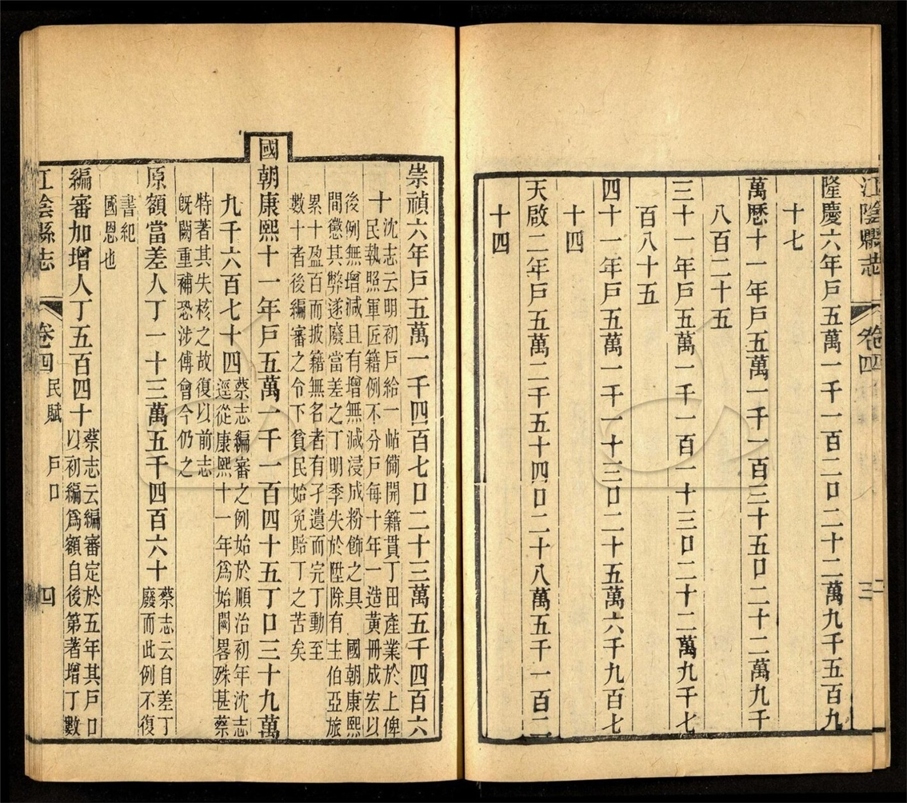 江陰縣志 卷四 三
隆慶六年戶五萬一千一百二口二十二萬九千五百九
十七
萬曆十一年戶五萬一千一百三十五口二十二萬九千
八百二十五
三十一年戶五萬一千一百一十三口二十二萬九千七
百八十五
四十一年戶五萬一千一十三口二十五萬六千九百七
十四
天啟二年戶五萬二千五十四口二十八萬五千一百二
十四
崇禎六年戶五萬一千四百七口二十三萬五千四百六
十
沈志云明初戶給一帖備開籍貫丁田產業於上俾
民執照軍匠籍例不分戶每十年一造黃冊成宏以
後例無增減且有增無減浸成粉飾之具 國朝康熙
間懲其弊遂廢當差之丁明季失於陞除有主伯亞旅
累十盈百而披籍無名者有孑遺而完丁動至
數十者後編審之令下貧民始免賠丁之苦矣
國朝康熙十一年戶五萬一千一百四十五丁口三十九萬
九千六百七十四
蔡志編審之例始於順治初年沈志
逕從康熙十一年爲始闊畧殊甚蔡
特著其失核之故復以前志
旣闕重補恐涉傅會今仍之
原額當差人丁一十三萬五千四百六十
蔡志云自差丁
廢而此例不復
書紀
國恩也
編審加增人丁五百四十
蔡志云編審定於五年其戶口
以初編爲額自後第著增丁數
江陰縣志 卷四 民賦 戶口 四